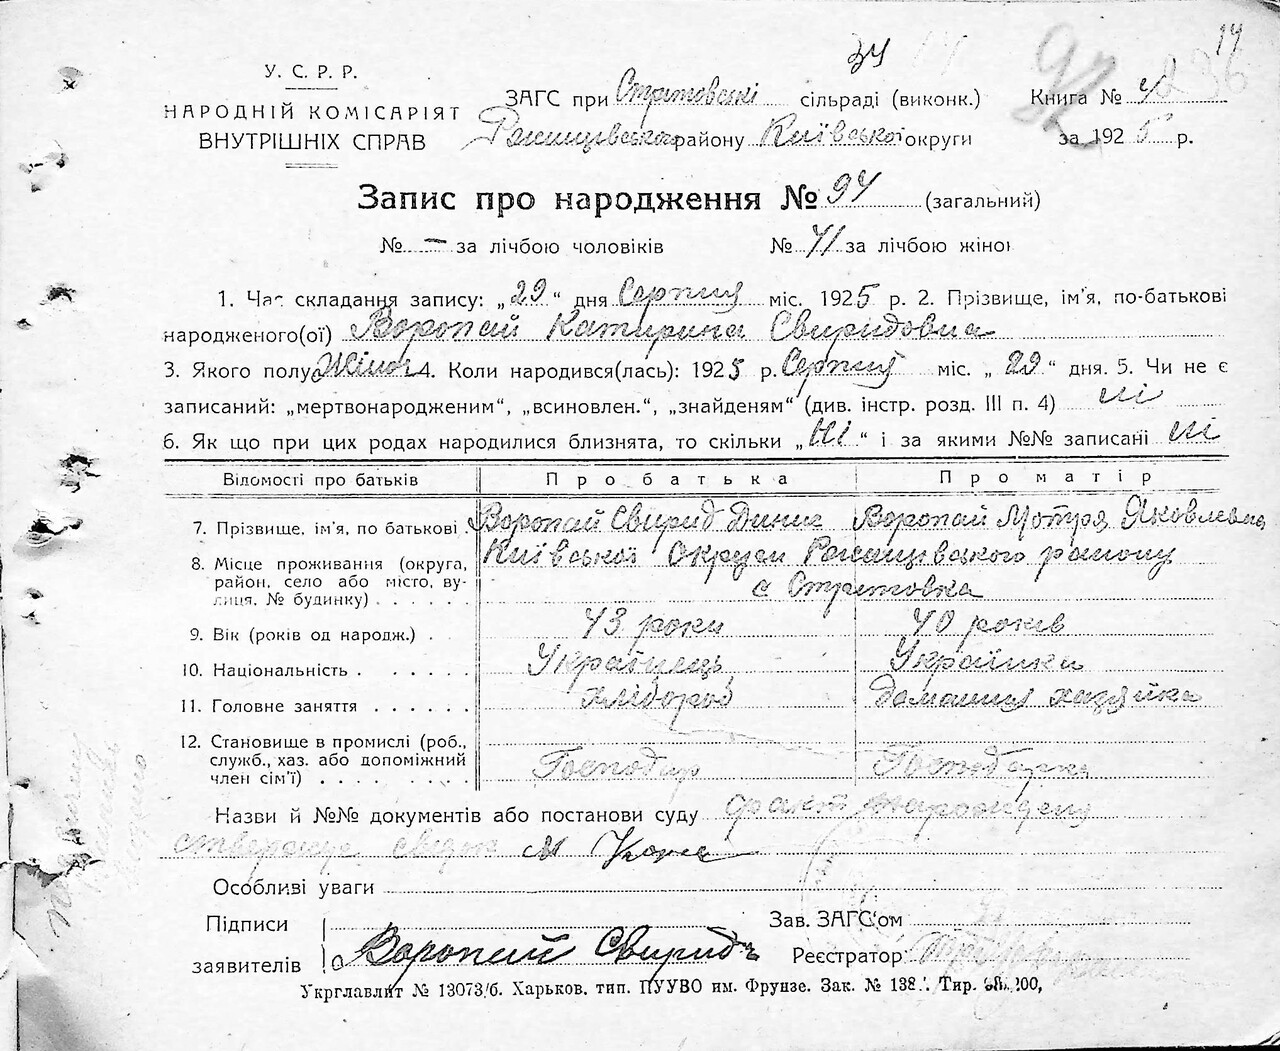 34 14
У. С. Р. Р.
НАРОДНІЙ КОМІСАРІЯТ
ВНУТРІШНІХ СПРАВ
ЗАГС при Стритовські сільраді (виконк.) Книга № 4
району Київської округи за 1925 р.
Запис про народження № 94 (загальний)
№ – за лічбою чоловіків № 41 за лічбою жіно
1. Час складання запису: „29“ дня Серпня міс. 1925 р. 2. Прізвище, ім'я, по-батькові
народженого(ої) Воропай Катирина Свиридовна
3. Якого полу Жіноч 4. Коли народився(лась): 1925 р. Серпня міс. „29“ дня. 5. Чи не є
записаний: „мертвонародженим“, „всиновлен.“, „знайденям“ (див. інстр. розд. III п. 4) ні
6. Як що при цих родах народилися близнята, то скільки „Ні“ і за якими №№ записані ні
Відомості про батьків Про батька Про матір
7. Прізвище, ім'я, по батькові Воропай Свирид Воропай Мотря Яковлевна
8. Місце проживання (округа, район, село або місто, вулиця, № будинку) Київської Округи району
с Стритовка
9. Вік (років од народж.) 43 роки 40 років
10. Національність Українець Українка
11. Головне заняття хлібороб домашня хазяйка
12. Становище в промислі (роб., служб., хаз. або допоміжний член сім'ї) Господар Господарка
Назви й №№ документів або постанови суду факт народжену
стверджує свідок М
Особливі уваги
Підписи Зав. ЗАГС'ом
заявителів Воропай Свиридъ Реєстратор
Укрглавліт № 13073/б. Харьков. тип. ПУУВО им. Фрунзе. Зак. № 138 Тир.